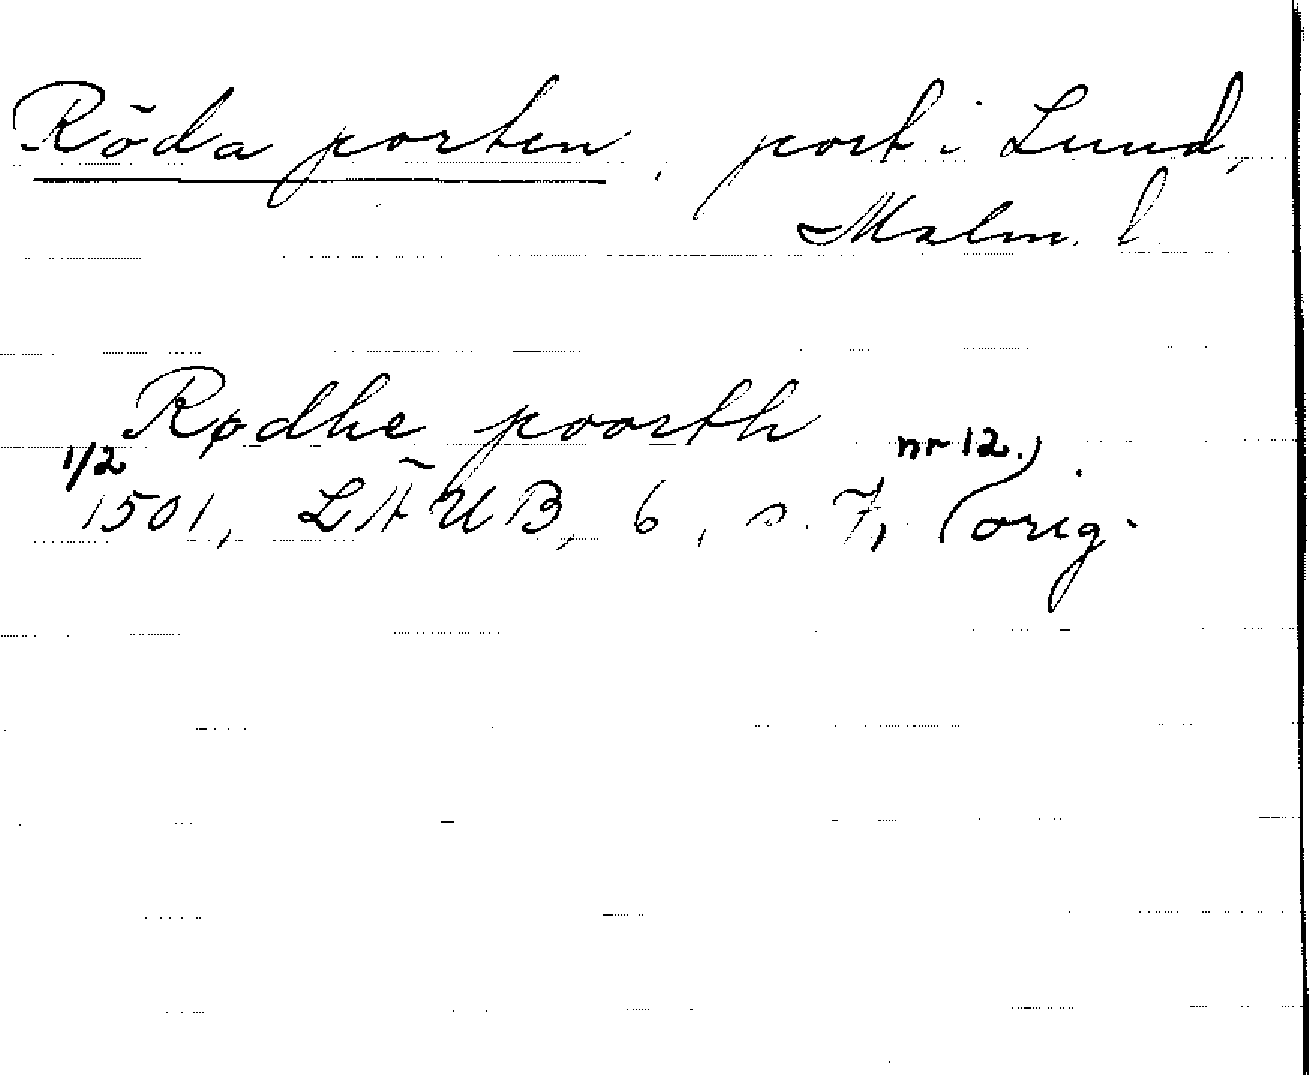 Röda porten, port i Lund,
Malm. l.
Rødhe poorth
1/2 1501, LÄUB, 6, s. 7, nr 12.) (orig.